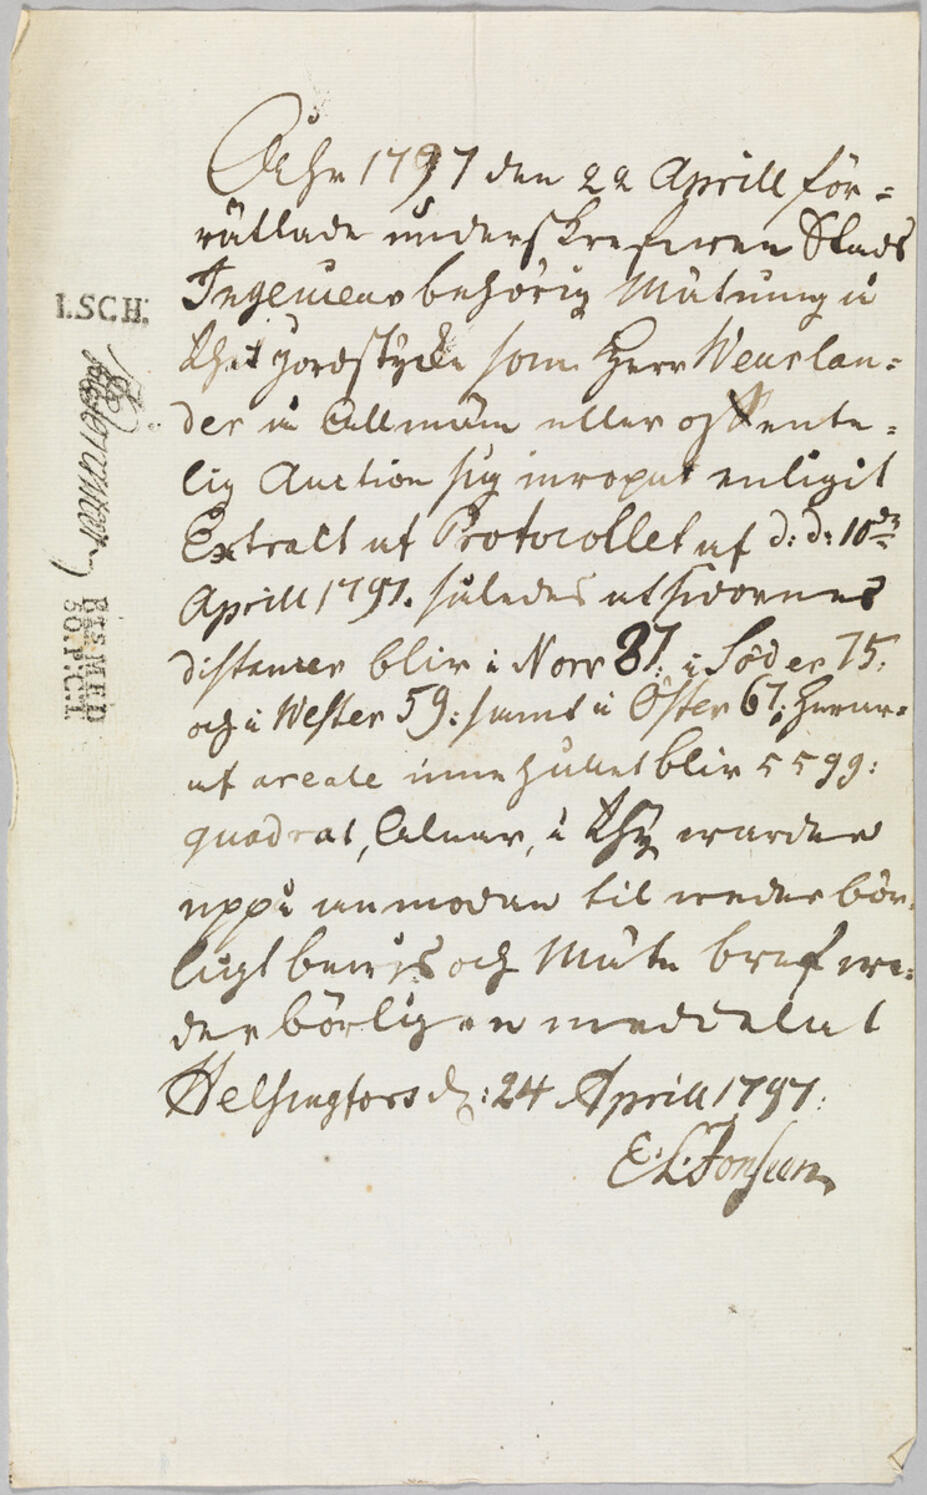 Åhr 1797 den 22 Aprill för=
rättade underskrefwen Stads
Ingenieur behörig Mätning å
thet jordstÿcke som Herr Weurlan=
der å Allmän eller offente=
lig Auction sig inropat enligit
Extract af Protocollet af d: d: 10de
Aprill 1797. således at sidornes
distancer blir i Norr 87: i Söder 75:
och i Wester 59: samt i Öster 67: hwar=
af areale innehållet blir 5599:
quadrat, Alnar, i thÿ warder
uppå anmodan til weder bör=
ligt bewis och Mäte bref we=
derbörligen meddelat
Helsingfors d: 24 Aprill 1797:
E. L. Jonsson
I.SCH.